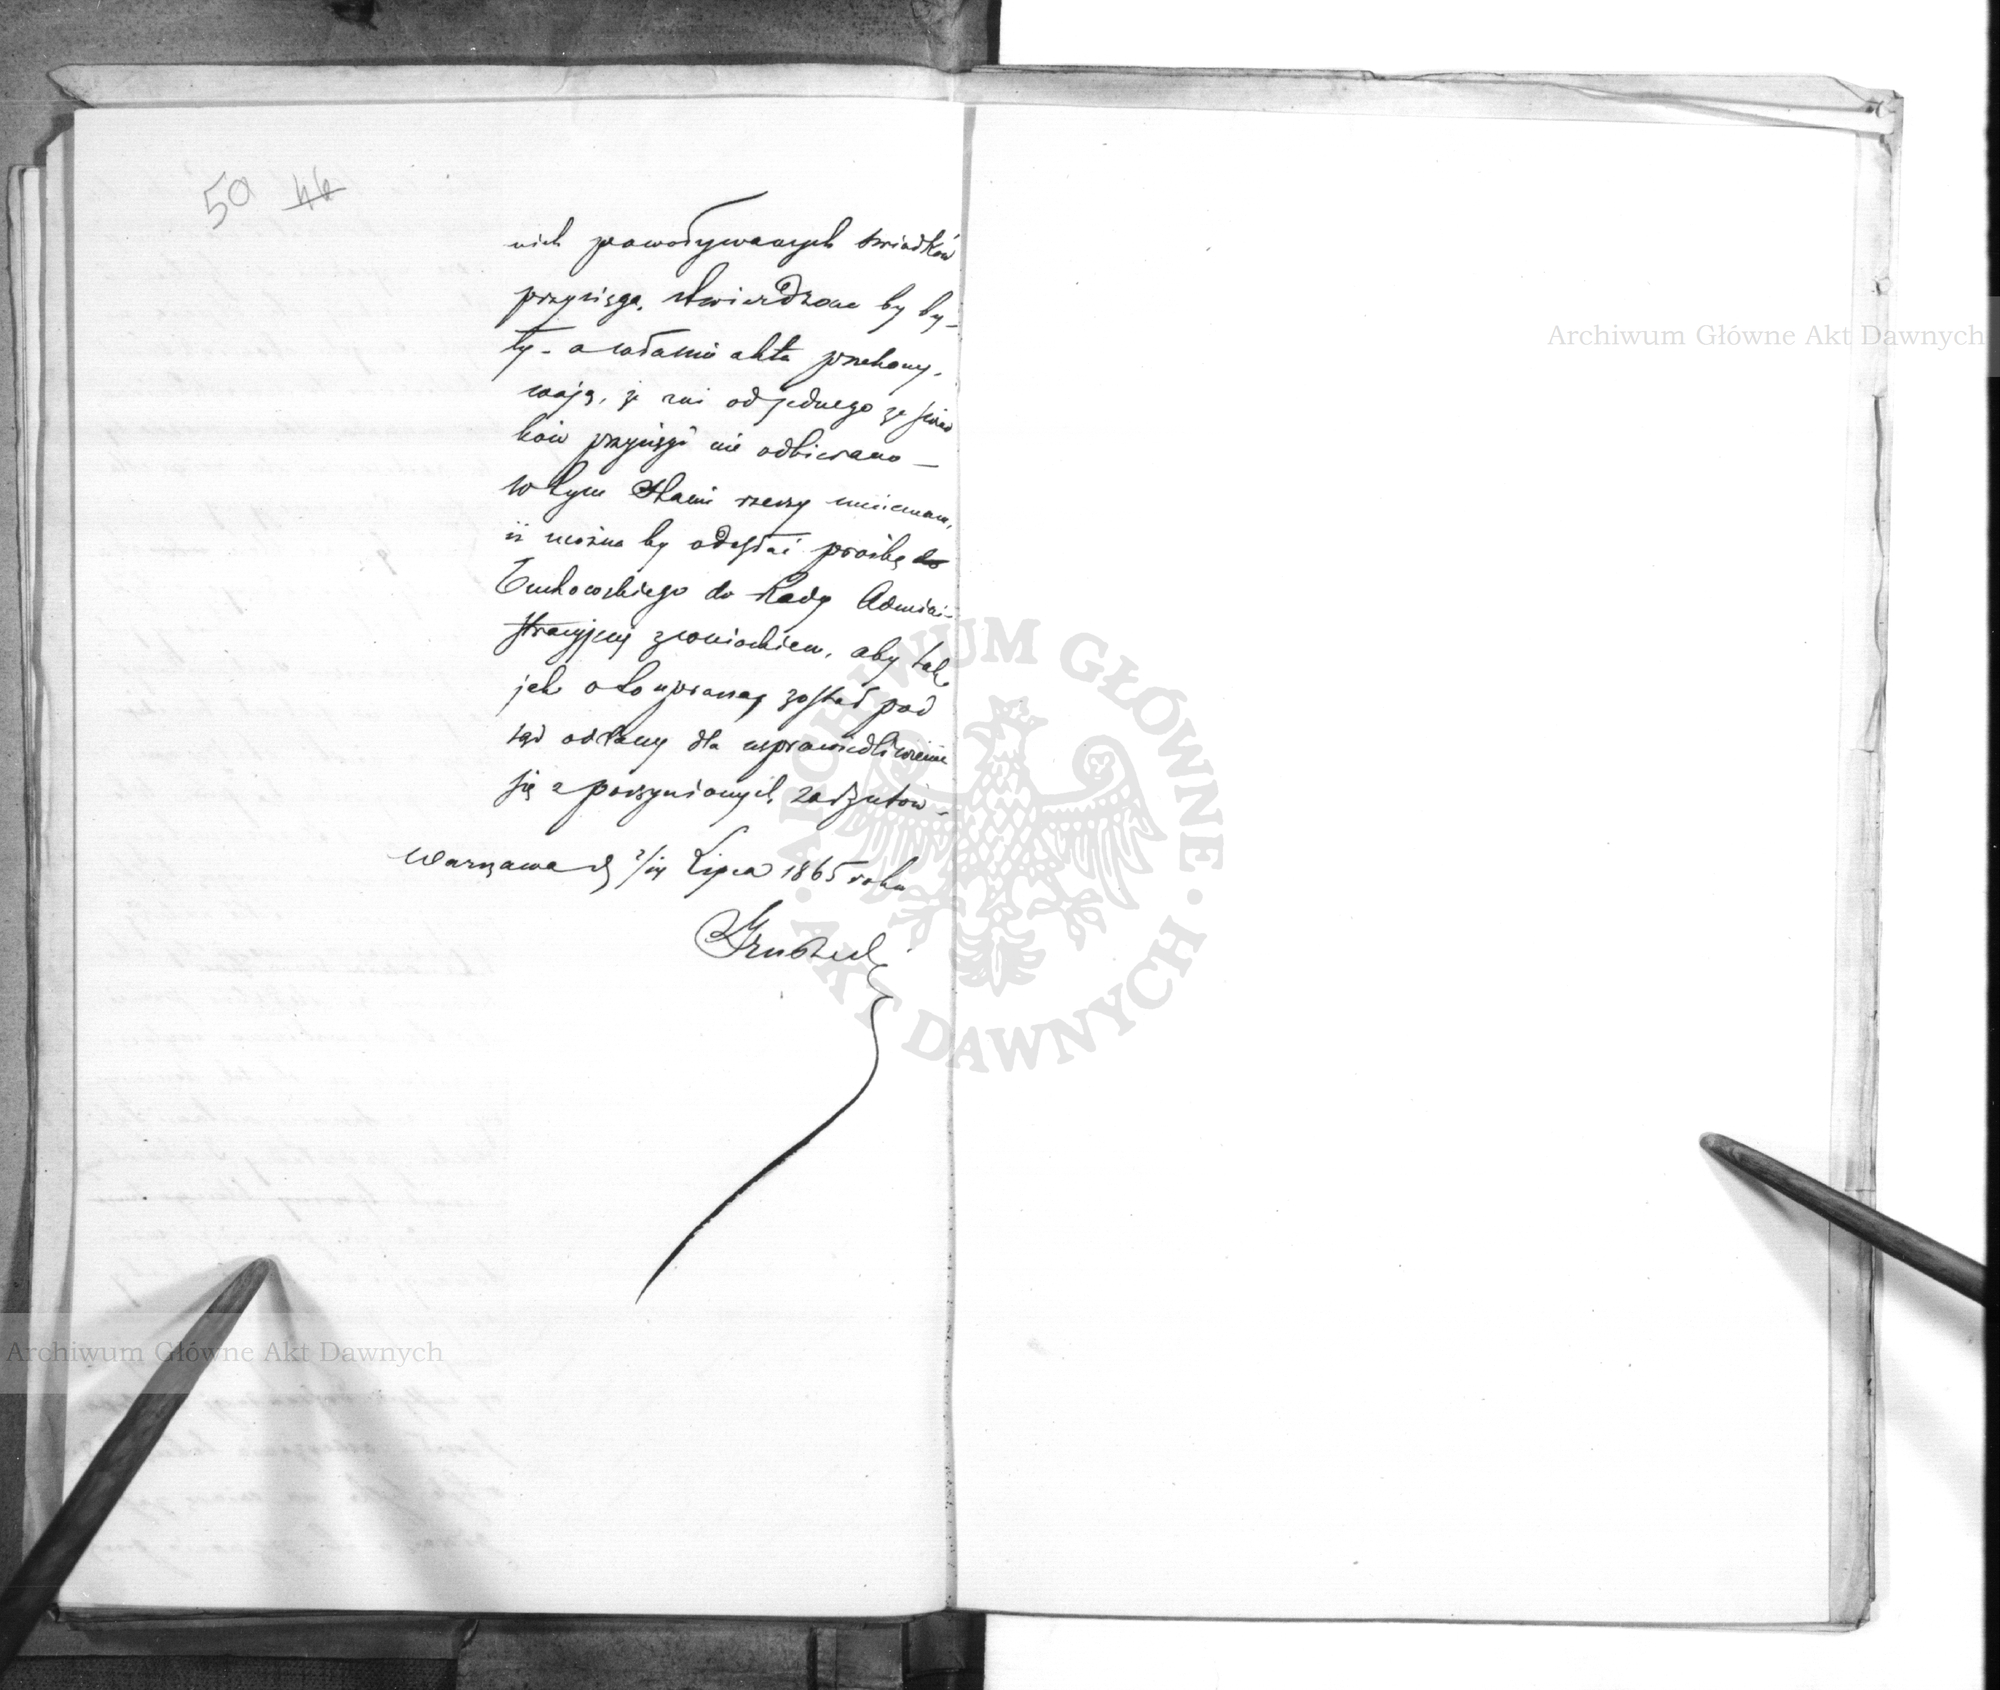 50 46
nich powoływanych świadków
przysięgą stwierdzone by by-
ły - a właśnie akta przekony-
wają, że ani od jednego ze świad
ków przysięgi nie odbierano -
W tym stanie rzeczy mniemam,
iż można by odesłać prośbę
do Rady Admini-
stracyjnej z wnioskiem, aby tak
jak oto uprasza, został pod
sąd oddany dla usprawiedliwienia
się z poczynionych zarzutów -
Warszawa d 2/14 Lipca 1865 roku
Archiwum Główne Akt Dawnych
ARCHIWUM GŁÓWNE
AKT DAWNYCH
Archiwum Główne Akt Dawnych